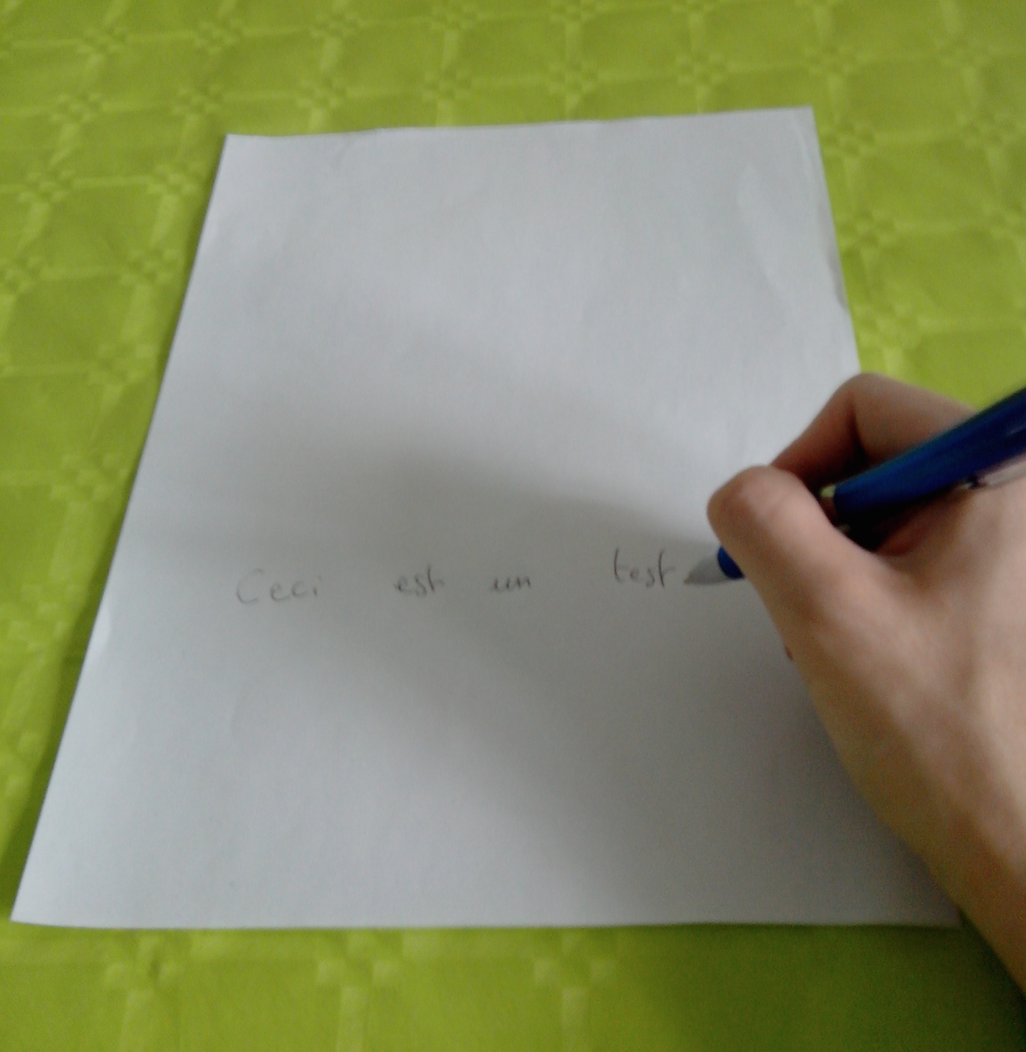 Ceci est un test